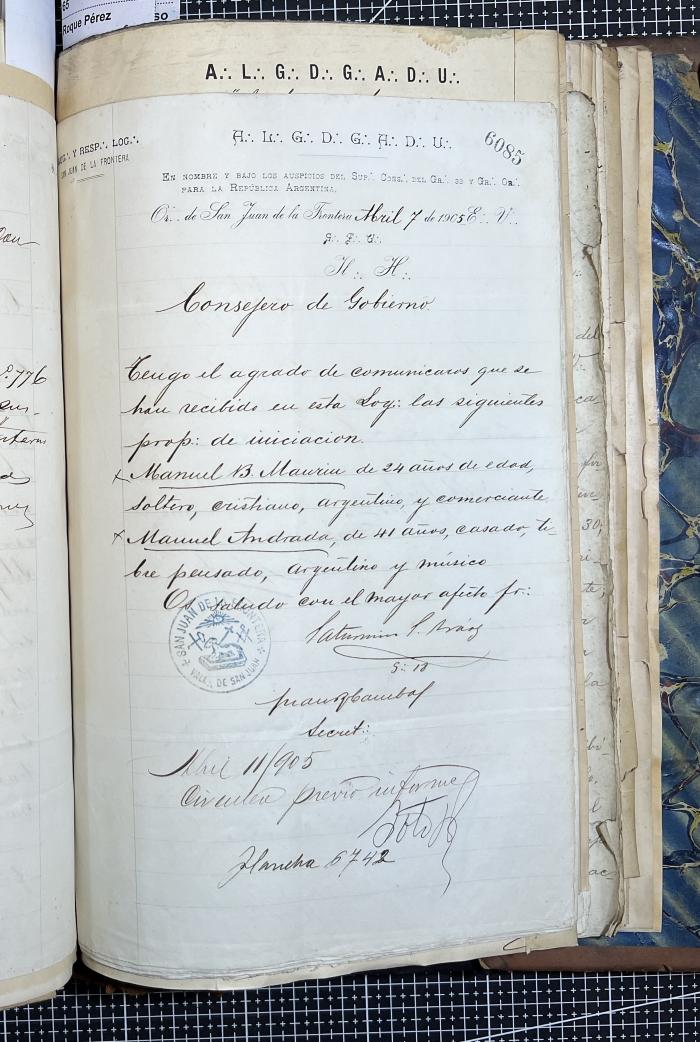 65
Roque Pérez
so
A∴ L∴ G∴ D∴ G∴ A∴ D∴ U∴
Y RESP∴ LOG∴
SAN JUAN DE LA FRONTERA
A∴ L∴ G∴ D∴ G∴ A∴ D∴ U∴
6085
EN NOMBRE Y BAJO LOS AUSPICIOS DEL SUP∴ CONS∴ DEL GR∴ 33 Y GR∴ OR∴
PARA LA REPÚBLICA ARGENTINA.
Or∴ de San Juan de la Frontera Abril 7 de 1905 E∴ V∴
S∴ F∴ U∴
H∴ H∴
Consejero de Gobierno
Tengo el agrado de comunicaros que se
han recibido en esta Log∴ las siguientes
prop∴ de iniciacion.
x Manuel B. Maurin de 24 años de edad,
soltero, cristiano, argentino, y comerciante
x Manuel Andrada, de 41 años, casado, li-
bre pensado, argentino y músico
Os saludo con el mayor afecto fr∴
SAN JUAN DE LA FRONTERA
VALL∴ DE SAN JUAN
Saturnino S. Aráoz
G∴ 18
Secret∴
Abril 11/905
Circulen previo informe
Plancha 6742